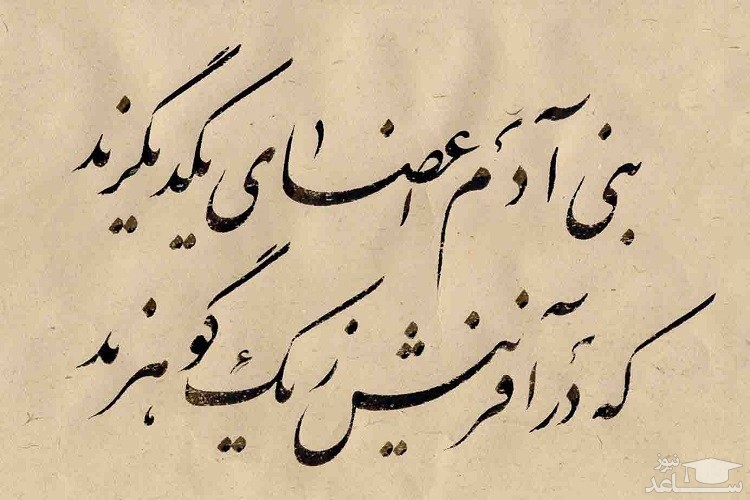 بنی آدم اعضای یکدیگرند
که در آفرینش ز یک گوهرند
نیوز
ساعد